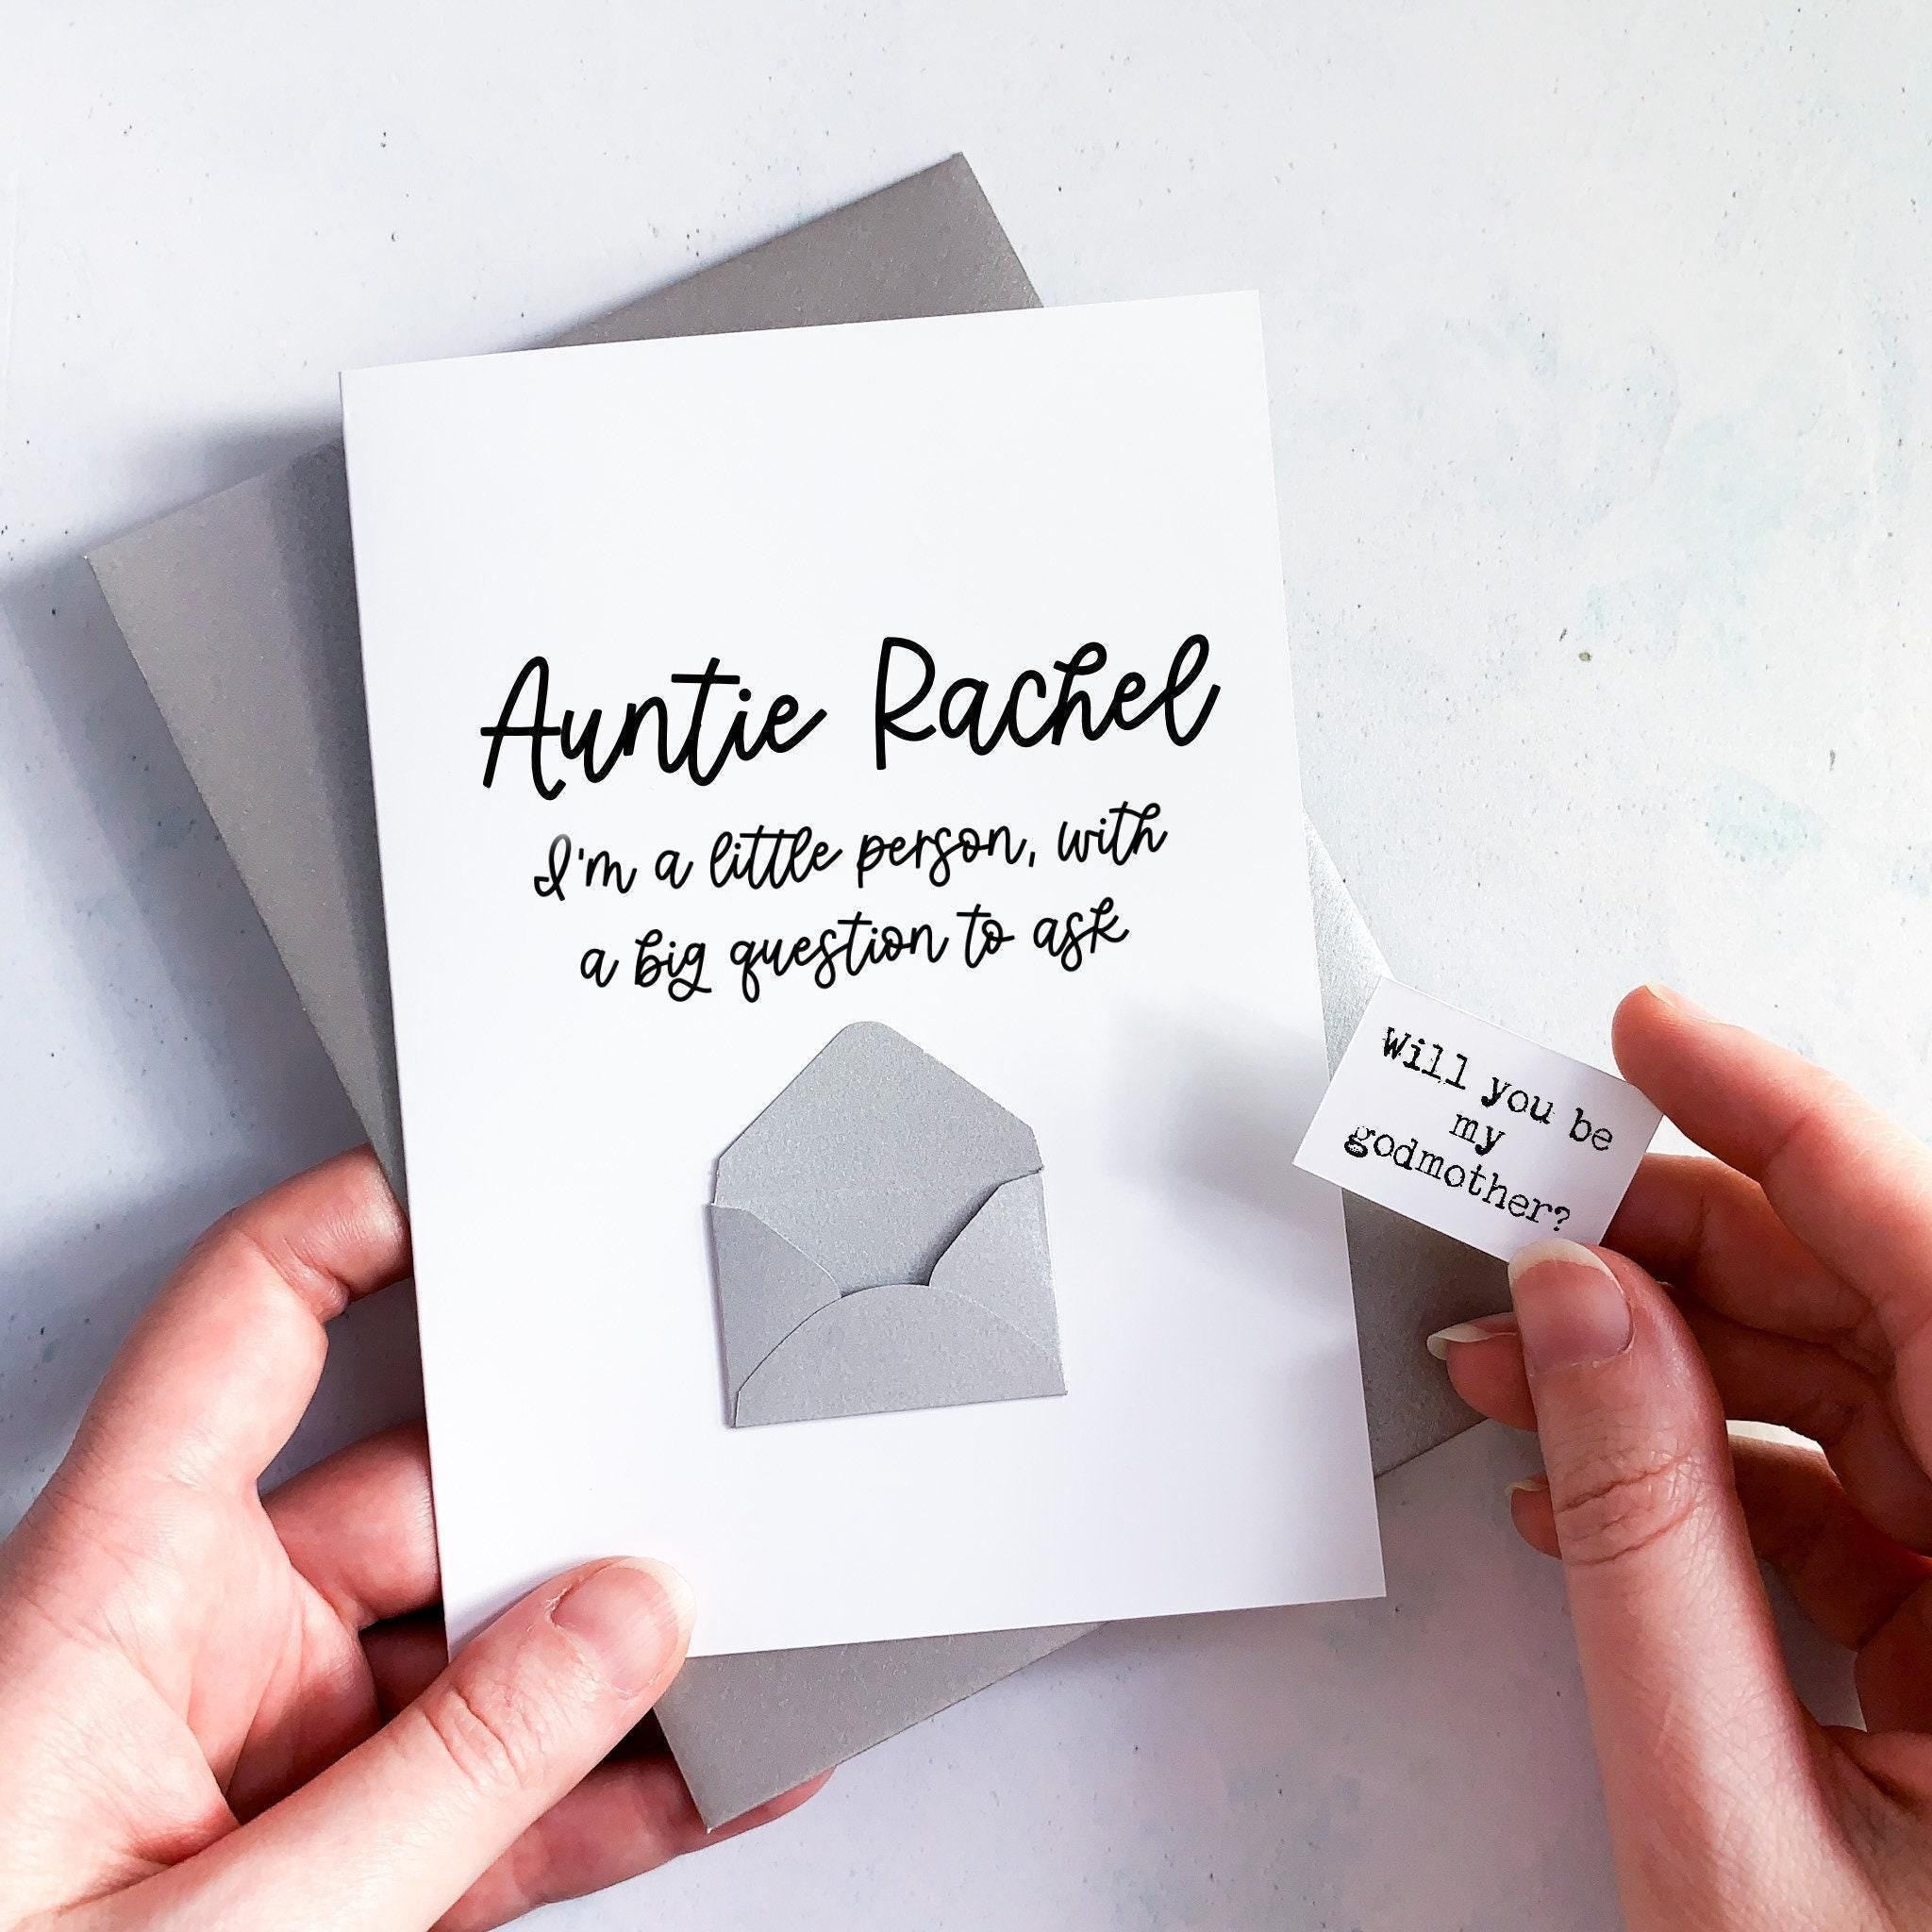 Auntie Rachel
I'm a little person, with
a big question to ask
Will you be
my
godmother?